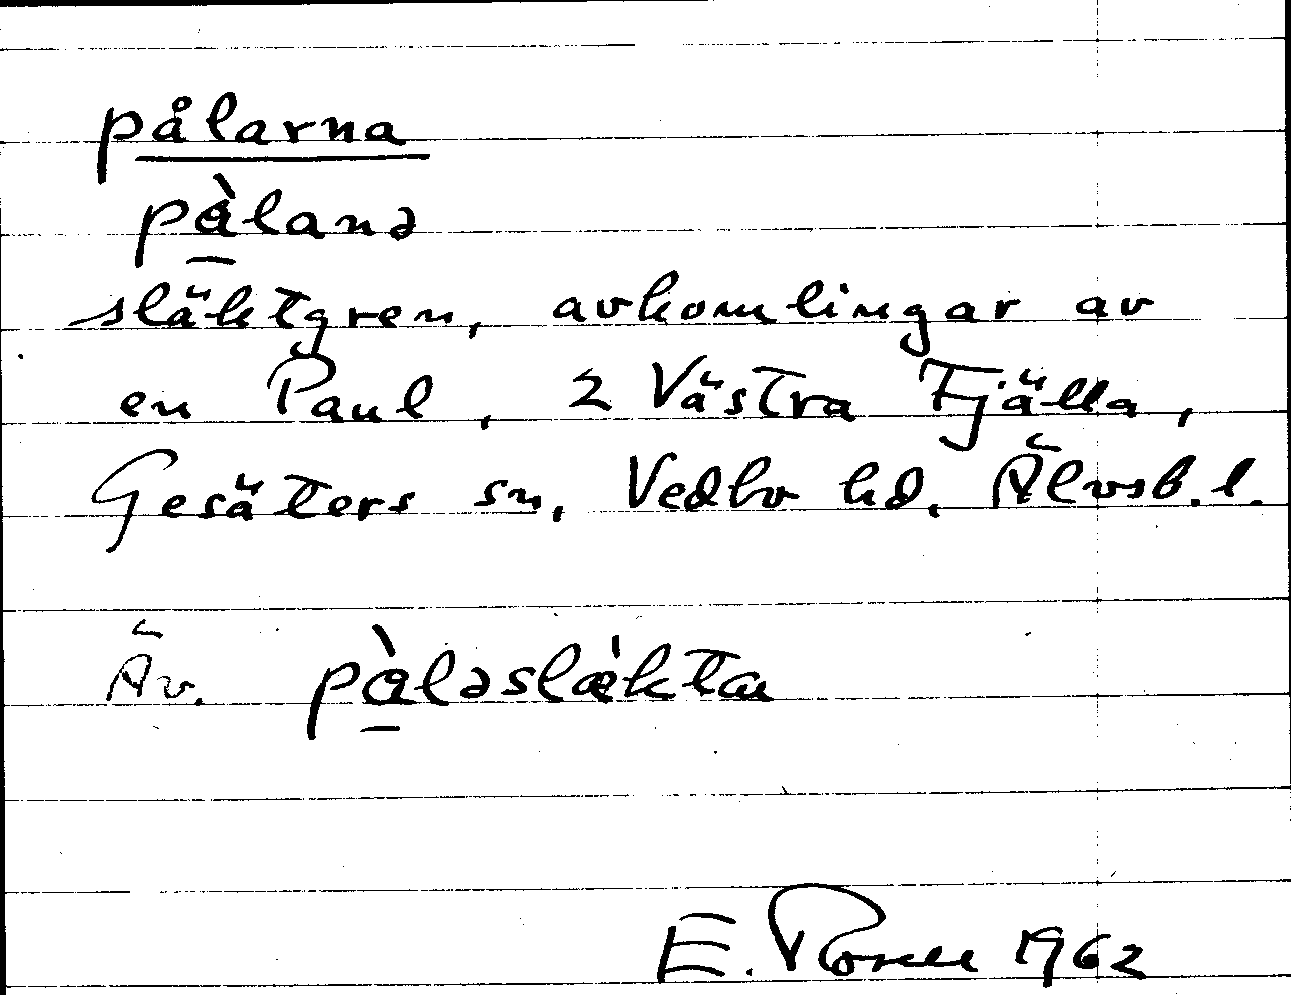 pålarna
pàlanə
släktgren, avkomlingar av
en Paul, 2 Västra Fjälla,
Gesäters sn, Vedbo hd, Älvsb. l.
Äv. pàləslækta
E. Rosell 1962